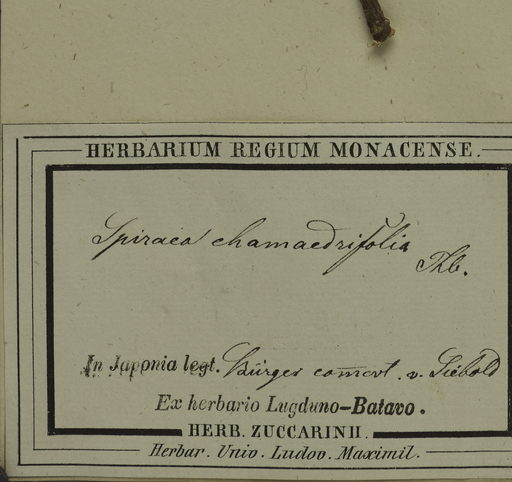 HERBARIUM REGIUM MONACENSE.
Spiraea chamaedrifolia
Thb.
In Japonia legt. Bürger com̅. v. Siebold
Ex herbario Lugduno-Batavo.
HERB. ZUCCARINII.
Herbar. Univ. Ludov. Maximil.